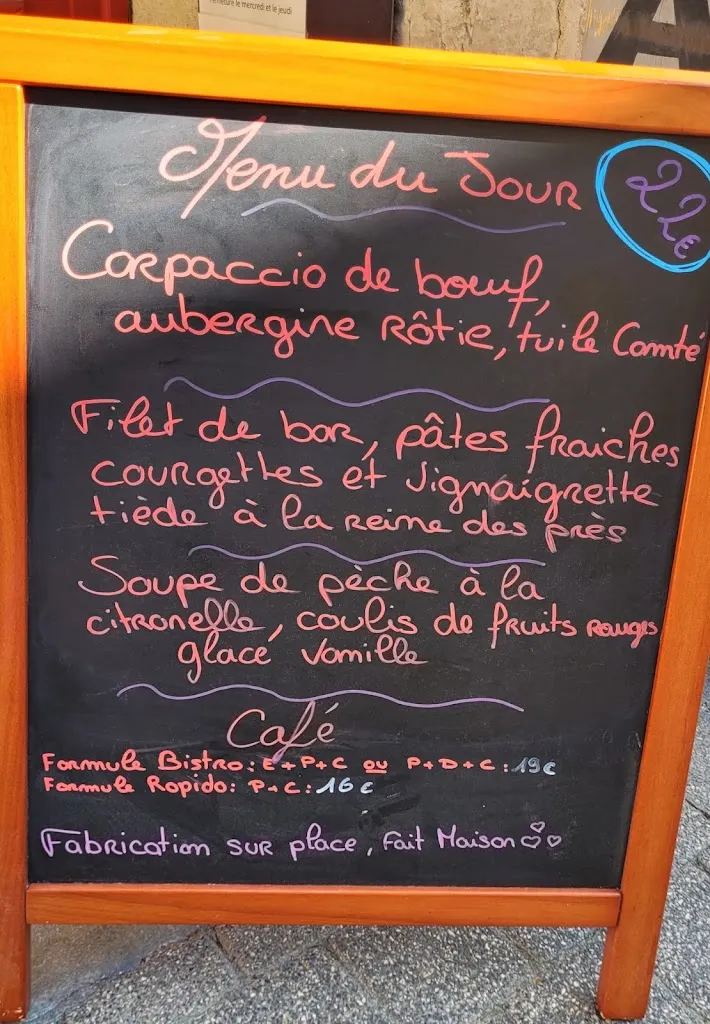 Fermeture le mercredi et le jeudi
Menu du Jour
22€
Carpaccio de bœuf,
aubergine Rôtie, tuile Comté
Filet de bar, pâtes fraiches
courgettes et vignaigrette
tiède à la reine des près
Soupe de pèche à la
citronelle, coulis de fruits rouges
glacé vanille
Café
Formule Bistro: E+P+C ou P+D+C: 19€
Formule Rapido: P+C: 16€
Fabrication sur place, Fait Maison